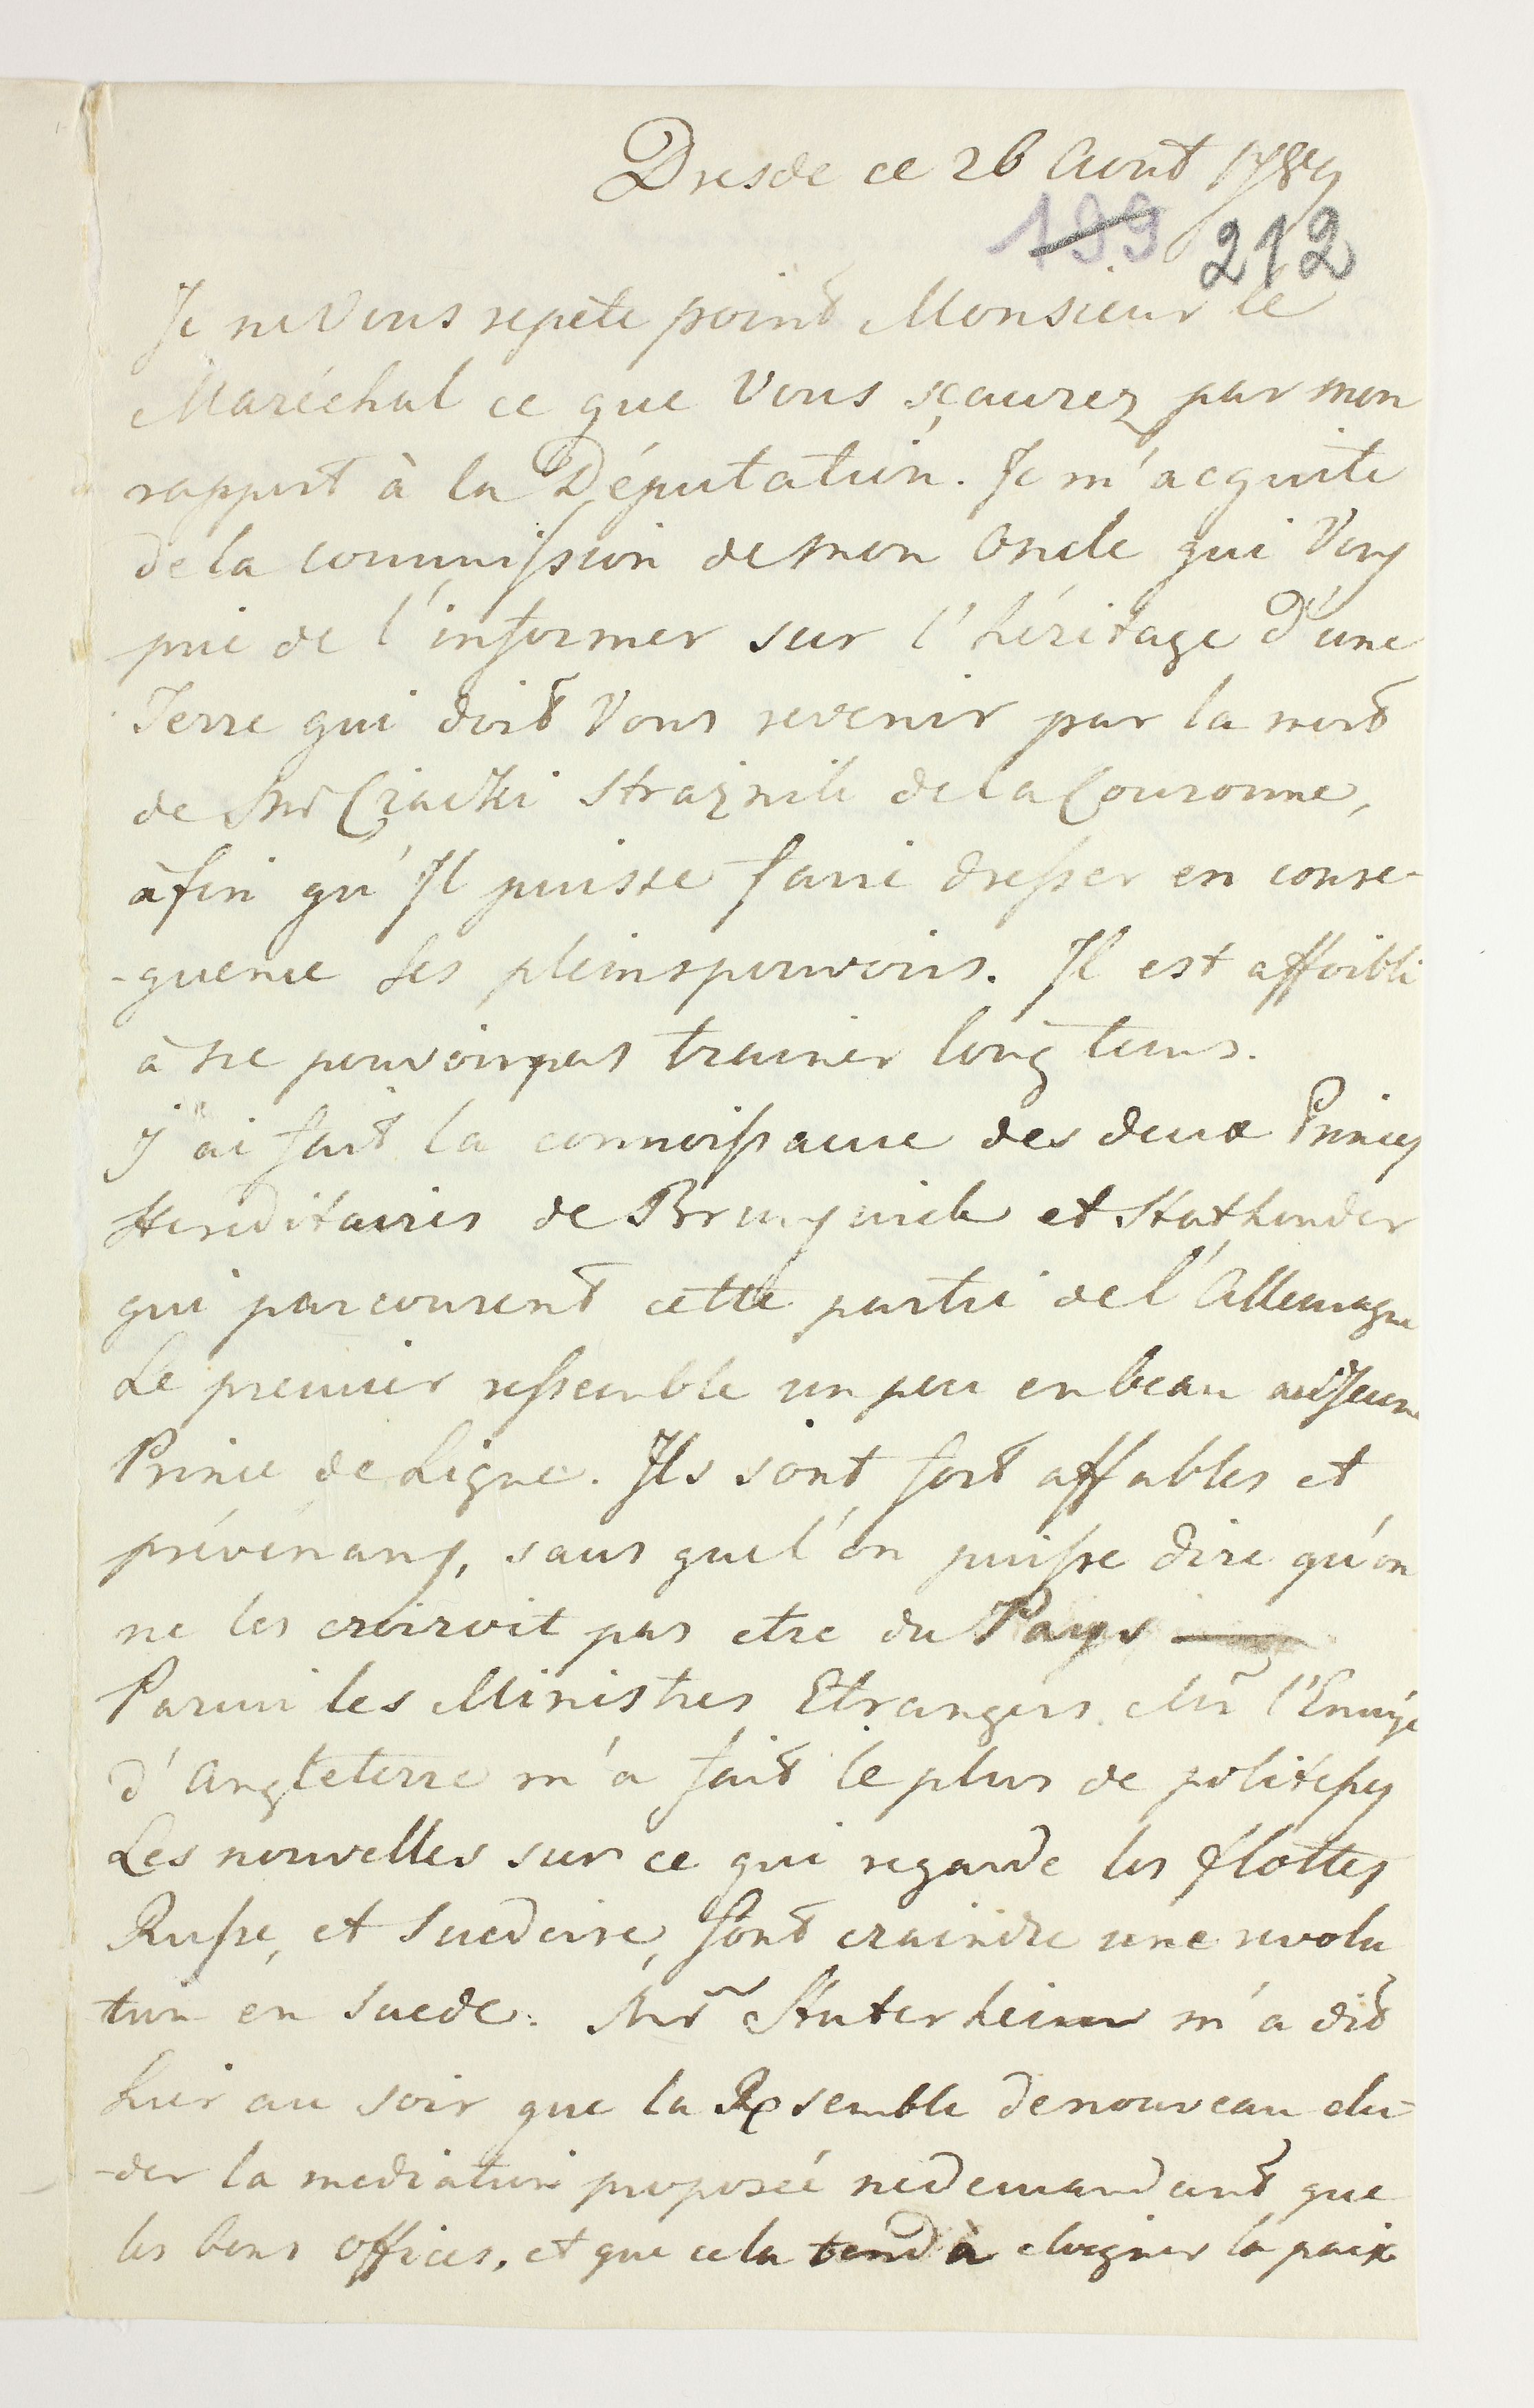 Dresde ce 26 Aout 1789
199 212
Je ne Vous repète point Monsieur le
Maréchal ce que Vous sçaurez par mon
rapport à la Députation. Je m'acquite
de la commission de mon Oncle qui Vous
prie de l'informer sur l'héritage d'une
Terre qui doit Vous revenir par la mort
de Mr Czacki Straznik de la Couronne,
àfin qu'Il puisse faire dresser en conse-
-quence ses pleinspouvoirs. Il est affoibli
à ne pouvoir pas trainer long tems.
J'ai fait la connoissance des deux Princes
Hereditaires de Brunsuick et Stathouder
qui parcourent cette partie de l'Allemagne
Le premier ressemble un peu en beau au Jeune
Prince de Ligne. Ils sont fort affables et
prévénans, sans que l'on puisse dire qu'on
ne les croiroit pas etre du Pays —
Parmi les Ministres Etrangers Mr l'Envoyé
d'Angleterre m'a fait le plus de politesses
Les nouvelles sur ce qui regarde les flottes
Russe, et Suedoise, font craindre une revolu
tion en Suede. Mr Stuterheim m'a dit
hier au soir que la R. semble denouveau elu-
-der la mediation proposée nedemandant que
les bons offices, et que cela tend à eloigner la paix